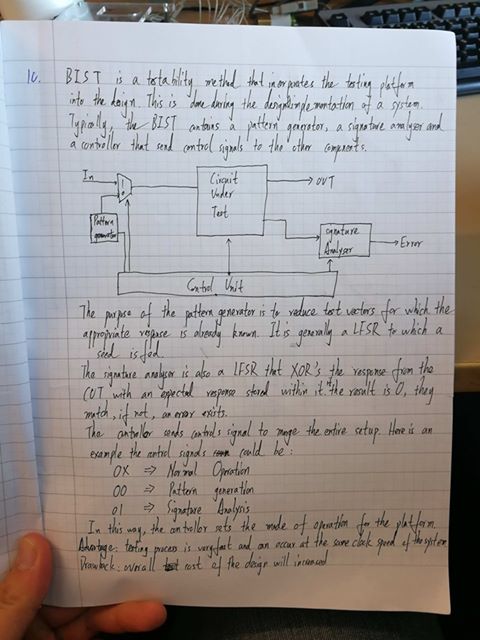 1c.
BIST is a testability method that incorporates the testing platform
into the design. This is done during the design & implementation of a system.
Typically, the BIST contains a pattern generator, a signature analyser and
a controller that send control signals to the other components.
In
1
0
Circuit
Under
Test
OUT
Pattern
generator
Signature
Analyser
Error
Control Unit
The purpose of the pattern generator is to reduce test vectors for which the
appropriate response is already known. It is generally a LFSR to which a
seed is fed.
The signature analyser is also a LFSR that XOR's the response from the
CUT with an expected response stored within it. If the result is 0, they
match, if not, an error exists.
The controller sends controls signal to manage the entire setup. Here is an
example the control signals could be:
0X => Normal Operation
00 => Pattern generation
01 => Signature Analysis
In this way, the controller sets the mode of operation for the platform.
Advantage: testing process is very fast and can occur at the same clock speed of the system
Drawback: overall cost of the design will increased